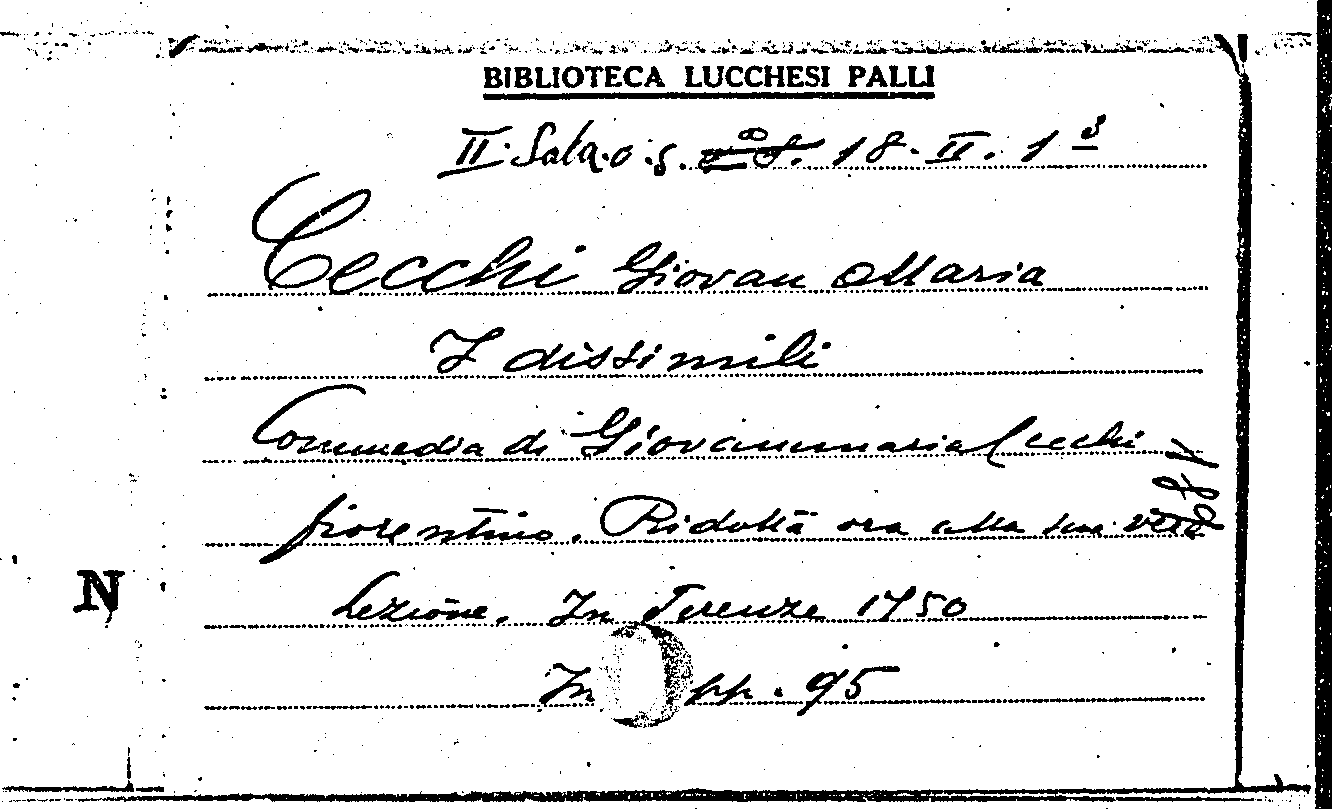 BIBLIOTECA LUCCHESI PALLI
II. Sala. o. s. 18. II. 1 3
Cecchi Giovan Maria
I dissimili
Commedia di Giovanmaria Cecchi
fiorentino. Ridotta ora alla sua vera
Lezione. In Firenze 1750
In pp. 95
N